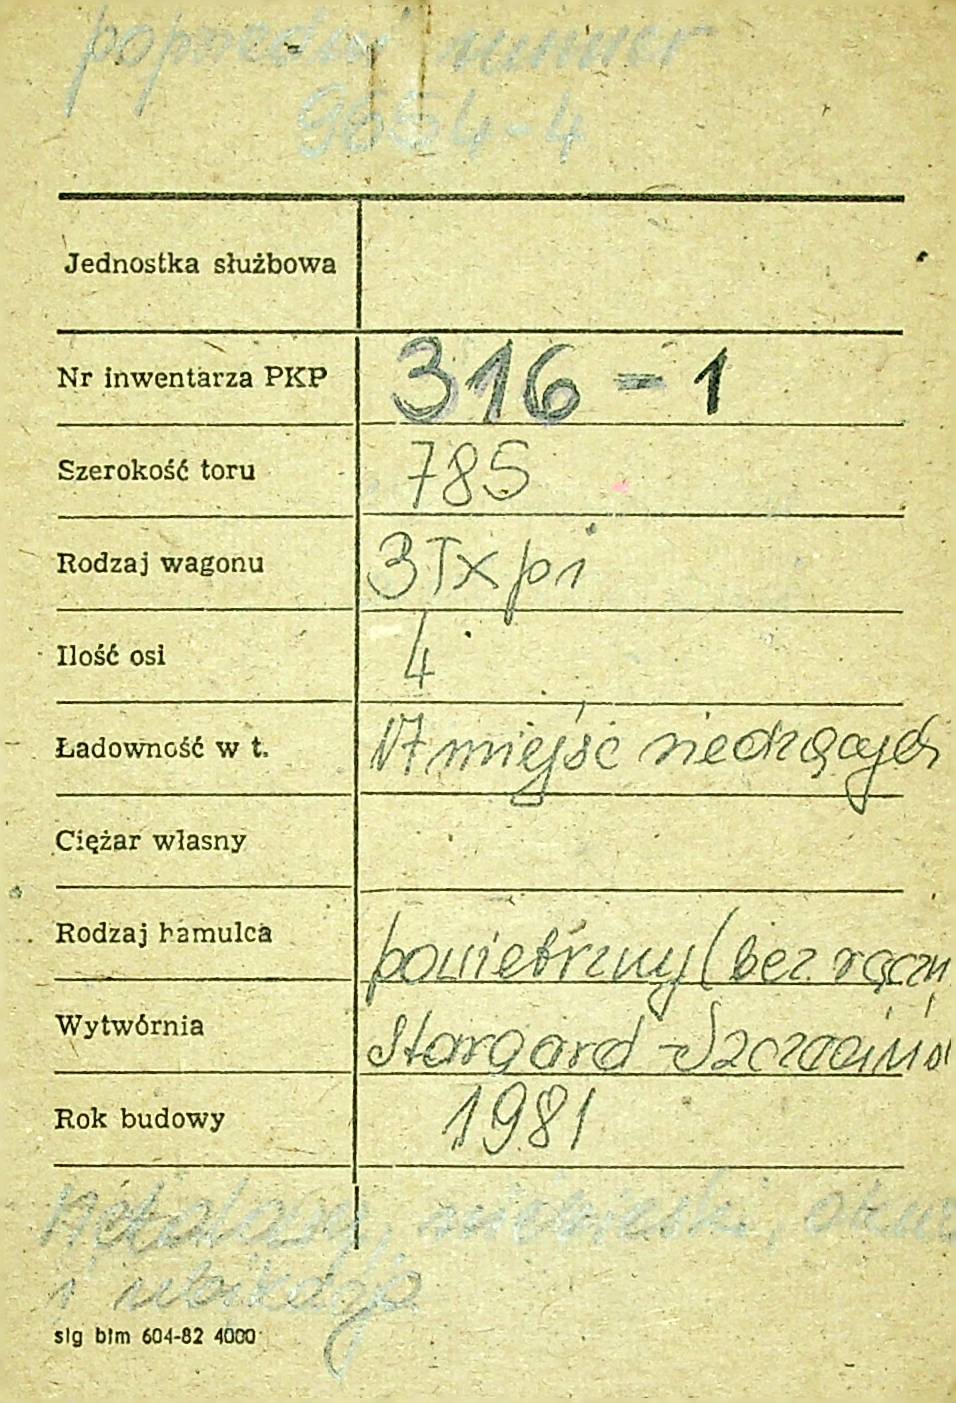 poprzedni numer
9654-4
Jednostka służbowa
Nr inwentarza PKP 316-1
Szerokość toru 785
Rodzaj wagonu 3Txpi
Ilość osi 4
Ładowność w t. 17 miejsc siedzących
Ciężar własny
Rodzaj hamulca powietrzny (bez ręczn
Wytwórnia Stargard-Szczecińs
Rok budowy 1981
niebieski,
i ubikacja
slg blm 604-82 4000